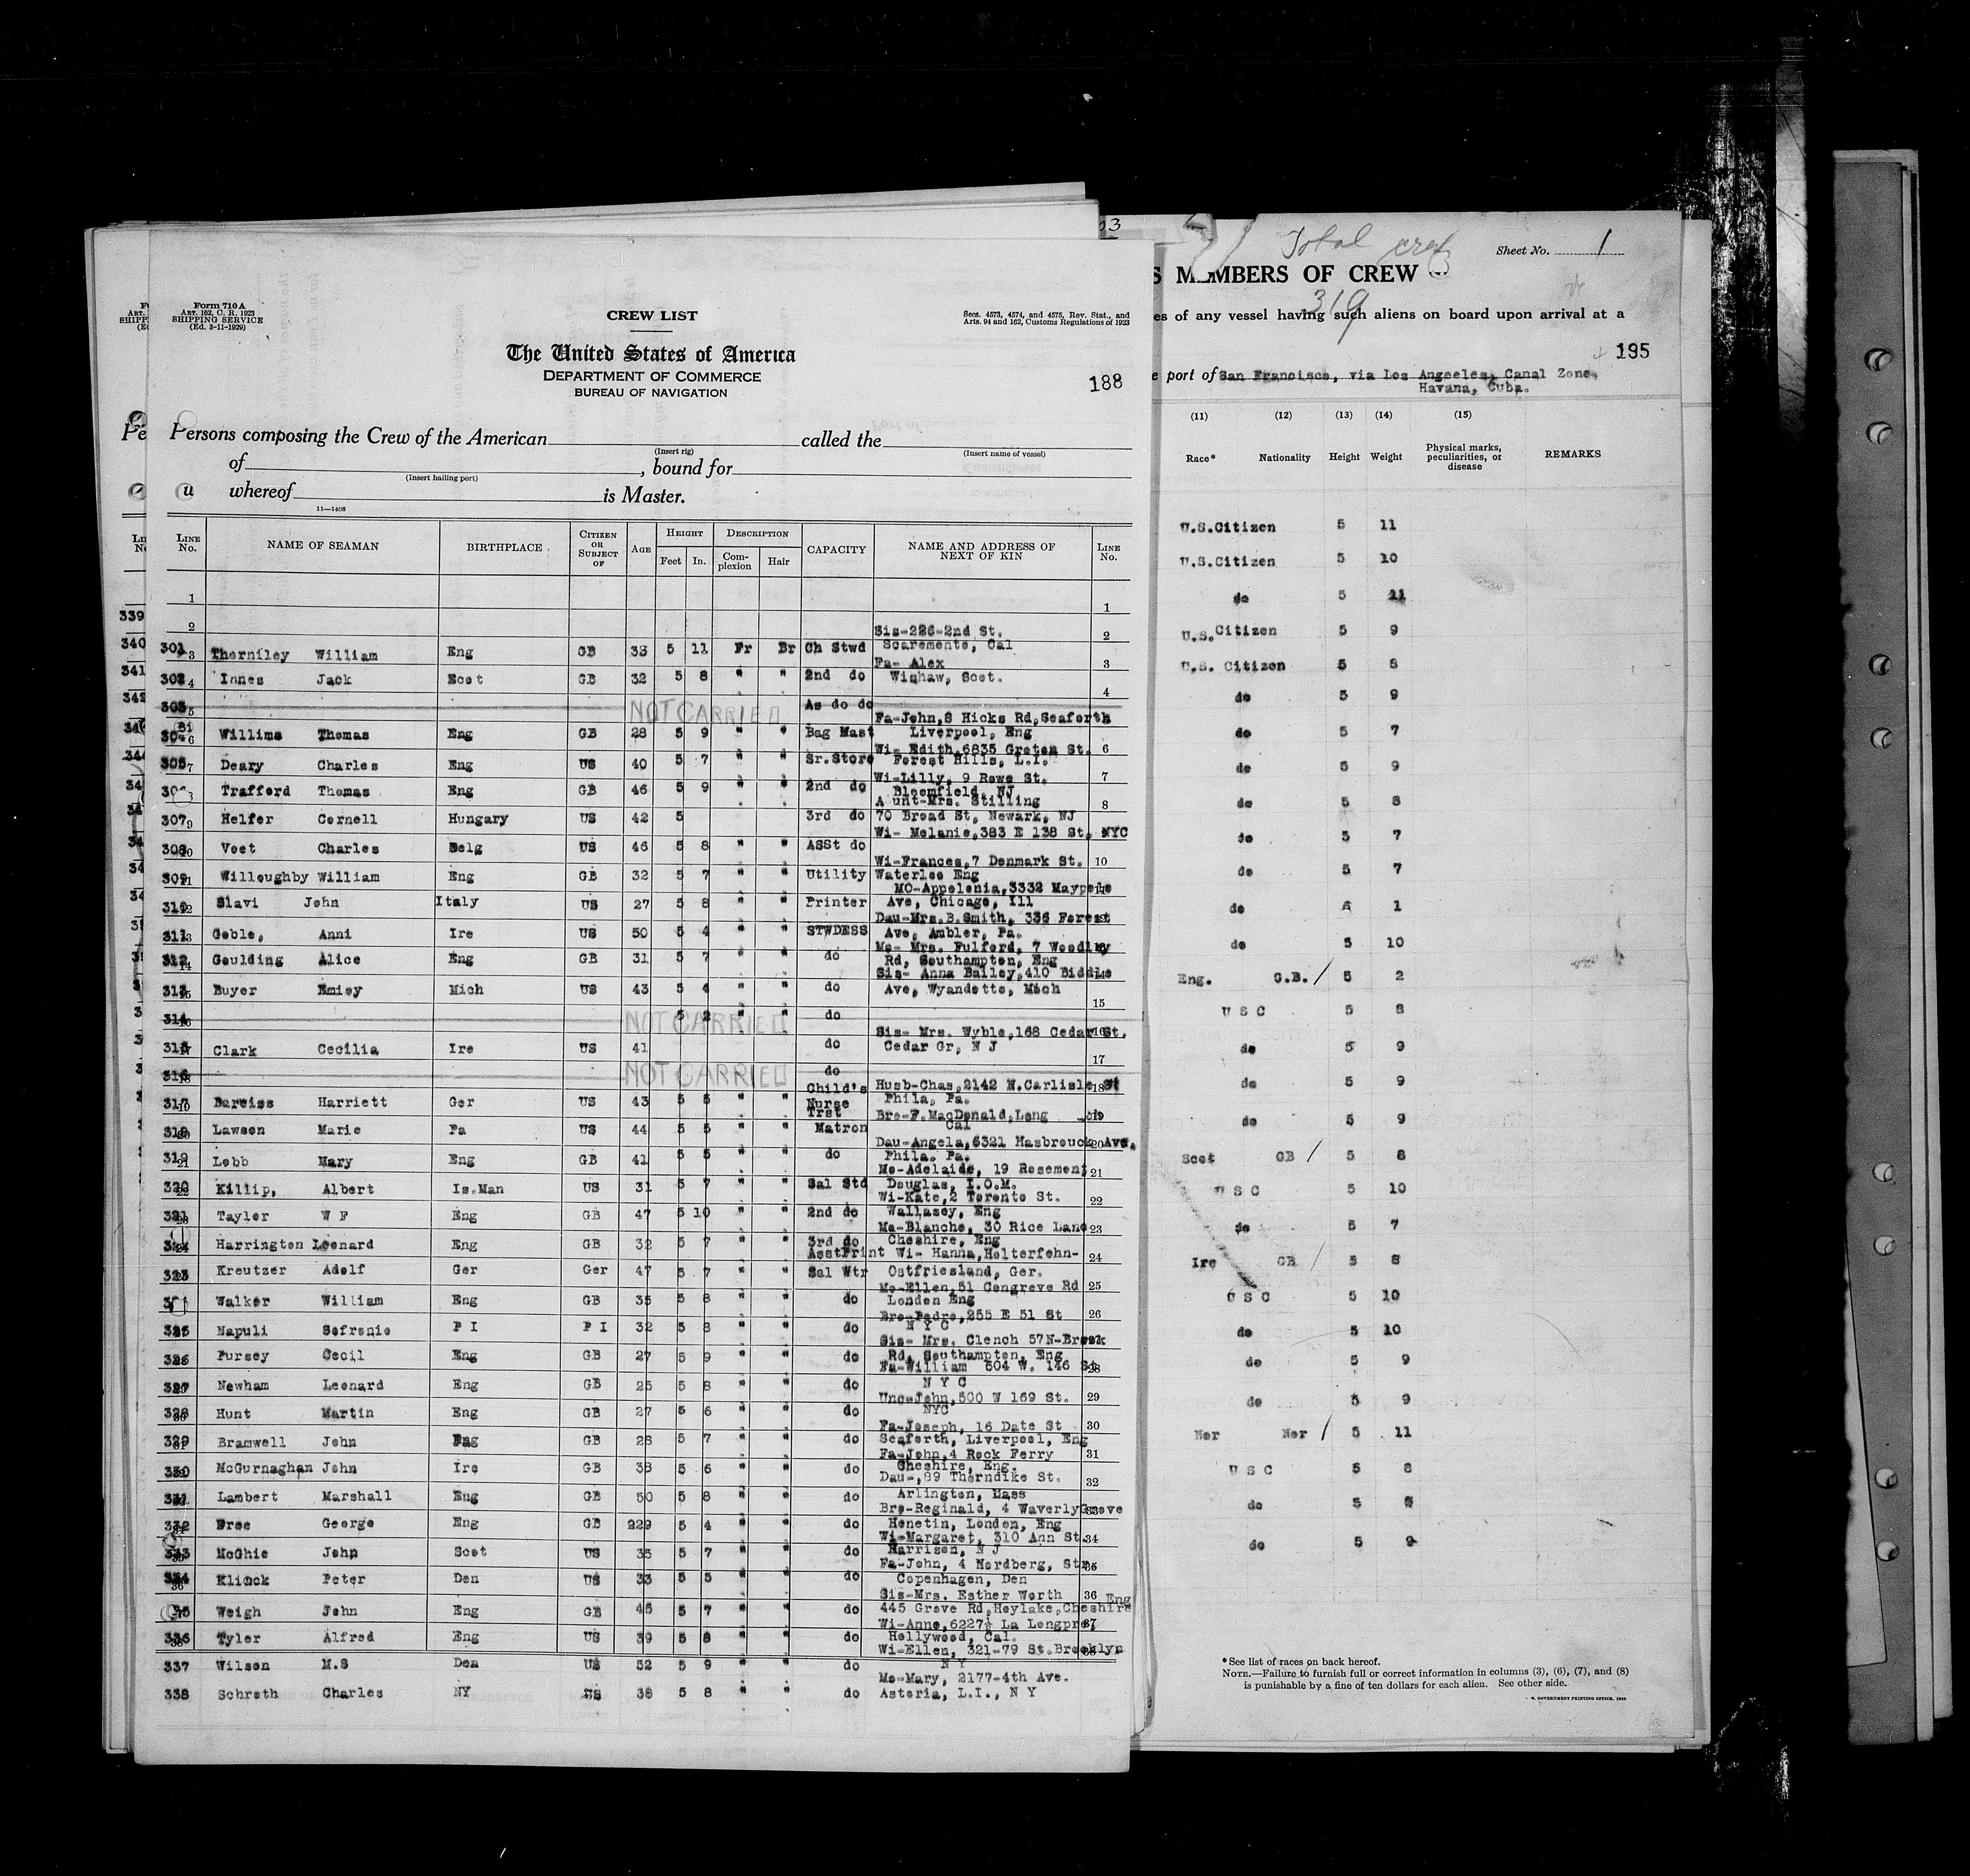 Form 710 A
ART. 162, C. R. 1923
SHIPPING SERVICE
(Ed. 3-11-1929)
CREW LIST
Secs. 4573, 4574, and 4575, Rev. Stat., and
Arts. 94 and 162, Customs Regulations of 1923
The United States of America
DEPARTMENT OF COMMERCE
BUREAU OF NAVIGATION
188
Persons composing the Crew of the American called the
(Insert rig) (Insert name of vessel)
of , bound for
(Insert hailing port)
whereof is Master.
11—1408
LINE No. NAME OF SEAMAN BIRTHPLACE CITIZEN OR SUBJECT OF AGE HEIGHT Feet In. DESCRIPTION Complexion Hair CAPACITY NAME AND ADDRESS OF NEXT OF KIN LINE No.
1 1
2 Sis-226-2nd St. 2
301 Thorniley William Eng GB 33 5 11 Fr Br Ch Stwd Scaremento, Cal
Fa- Alex 3
302 Innes Jack Scot GB 32 5 8 " " 2nd do Wishaw, Scot.
4
303 NOT CARRIED As do do
Fa-John,8 Hicks Rd,Seaforth
304 Willims Thomas Eng GB 28 5 9 " " Bag Mast Liverpool, Eng
Wi- Edith,6835 Groton St. 6
305 Deary Charles Eng US 40 5 7 " " Sr.Store Forest Hills, L.I.
Wi-Lilly, 9 Rowe St. 7
306 Trafford Thomas Eng GB 46 5 9 " " 2nd do Bloomfield, NJ
A unt-Mrs. Stilling 8
307 Helfer Cornell Hungary US 42 5 3rd do 70 Broad St, Newark, NJ
Wi- Melanie,383 E 138 St, NYC
308 Voet Charles Belg US 46 5 8 " " ASSt do
Wi-Frances,7 Denmark St. 10
309 Willoughby William Eng GB 32 5 7 " " Utility Waterloo Eng
MO-Appolonia,3332 Maypole
310 Slavi John Italy US 27 5 8 " " Printer Ave, Chicago, Ill
Dau-Mrs.B.Smith, 336 Forest
311 Goble, Anni Ire US 50 5 4 " " STWDESS Ave, Ambler, Pa.
Mo- Mrs. Fulford, 7 Woodley
312 Goulding Alice Eng GB 31 5 7 " " do Rd, Southampton, Eng
Sis- Anna Bailey,410 Biddle
313 Buyer Emisy Mich US 43 5 4 " " do Ave, Wyandotte, Mich
15
314 NOT CARRIED 5 2 " " do
Sis- Mrs. Wyble,168 Cedar St.
315 Clark Cecilia Ire US 41 do Cedar Gr, N J
17
316 NOT CARRIED do
Child's Husb-Chas,2142 N.Carlisle St
317 Dareiss Harriett Ger US 43 5 5 " " Nurse Phila, Pa.
Trst Bro-F.MacDonald,Long
318 Lawson Marie Pa US 44 5 5 " " Matron Cal
Dau-Angela,6321 Hasbrouck Ave.
319 Lobb Mary Eng GB 41 5 5 " " do Phila. Pa.
Mo-Adelaide, 19 Rosement 21
320 Killip, Albert Is.Man US 31 5 7 " " Sal Std Douglas, I.O.M.
Wi-Kate,2 Toronto St. 22
321 Tayler W F Eng GB 47 5 10 " " 2nd do Wallasey, Eng
Mo-Blanche, 30 Rice Lane 23
Harrington Leonard Eng GB 32 5 7 " " 3rd do Cheshire, Eng
AsstPrint Wi- Hanna,Holterfehn- 24
323 Kreutzer Adolf Ger Ger 47 5 7 " " Sal Wtr Ostfriesland, Ger.
Mo-Ellen,51 Congreve Rd 25
Walker William Eng GB 35 5 8 " " do London Eng
Bro-Pedro,255 E 51 St 26
325 Napuli Sofronio P I P I 32 5 8 " " do N Y C
Sis- Mrs. Clench 57N-Brook
326 Pursey Cecil Eng GB 27 5 9 " " do Rd, Southampton, Eng
Fa-William 504 W. 146 St 28
327 Newham Leonard Eng GB 25 5 8 " " do N Y C
Unc-John,500 W 169 St. 29
328 Hunt Martin Eng GB 27 5 6 " " do NYC
Fa-Joseph, 16 Date St 30
329 Bramwell John Eng GB 28 5 7 " " do Seaforth, Liverpool, Eng
Fa-John,4 Rock Ferry 31
330 McGurnaghan John Ire GB 38 5 6 " " do Cheshire, Eng.
Dau-,89 Thorndike St. 32
331 Lambert Marshall Eng GB 50 5 8 " " do Arlington, Mass
Bro-Reginald, 4 WaverlyGrove
332 Bree George Eng GB 229 5 4 " " do Henetin, London, Eng
Wi-Margaret, 310 Ann St. 34
333 McGhie John Scot US 35 5 7 " " do Harrison, N J
Fa-John, 4 Nordberg, Str.
334 Klinck Peter Den US 33 5 5 " " do Copenhagen, Den
Sis-Mrs. Esther Worth 36 Eng
Weigh John Eng GB 45 5 7 " " do 445 Grove Rd,Hoylake,Cheshire
Wi-Anne,6227½ La Longpre,
336 Tyler Alfred Eng US 39 5 8 " " do Hollywood, Cal.
Wi-Ellen, 321-79 St.Brooklyn
337 Wilson M.S Den US 52 5 9 " " do N Y
Mo-Mary, 2177-4th Ave.
338 Schroth Charles NY US 38 5 8 " " do Astoria, L.I., N Y
339
340
341
342
Total crew
319
Sheet No. 1
S MEMBERS OF CREW
es of any vessel having such aliens on board upon arrival at a
195
e port of San Francisco, via Los Angeles, Canal Zone,
Havana, Cuba.
(11) (12) (13) (14) (15)
Race* Nationality Height Weight Physical marks, peculiarities, or disease REMARKS
U.S.Citizen 5 11
U.S.Citizen 5 10
do 5 11
U.S.Citizen 5 9
U.S. Citizen 5 8
do 5 9
do 5 7
do 5 9
do 5 8
do 5 7
do 5 7
do 6 1
do 5 10
Eng. G.B. / 5 2
U S C 5 8
do 5 9
do 5 9
do 5 9
Scot GB / 5 8
U S C 5 10
do 5 7
Ire GB / 5 8
U S C 5 10
do 5 10
do 5 9
do 5 9
Nor Nor / 5 11
U S C 5 8
do 5
do 5 9
*See list of races on back hereof.
NOTE.—Failure to furnish full or correct information in columns (3), (6), (7), and (8)
is punishable by a fine of ten dollars for each alien. See other side.